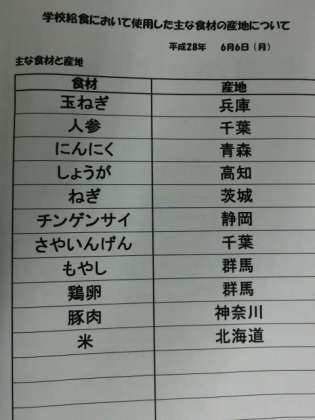 学校給食において使用した主な食材の産地について
平成28年　6月6日（月）
主な食材と産地
食材　産地
玉ねぎ　兵庫
人参　千葉
にんにく　青森
しょうが　高知
ねぎ　茨城
チンゲンサイ　静岡
さやいんげん　千葉
もやし　群馬
鶏卵　群馬
豚肉　神奈川
米　北海道